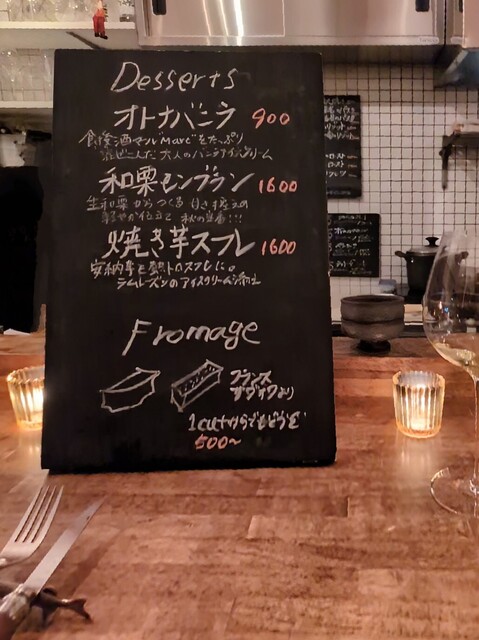 Desserts
オトナバニラ 900
食後酒マール"Marc"をたっぷり
混ぜこんだ大人のバニラアイスクリーム
和栗モンブラン 1600
生和栗からつくる 付き きえの
軽やか仕立て 秋の定番!!!
焼き芋スフレ 1600
安納芋を熱トロスフレに。
ラムレーズンのアイスクリーム添え
Fromage
フランス
サヴォワより
1cutからでもどうぞ
500~